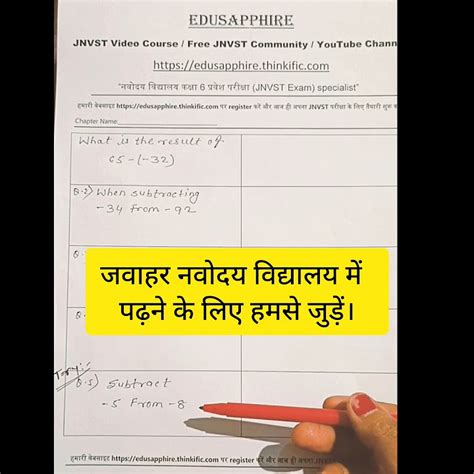 EDUSAPPHIRE
JNVST Video Course / Free JNVST Community / YouTube Chann
https://edusapphire.thinkific.com
"नवोदय विद्यालय कक्षा 6 प्रवेश परीक्षा (JNVST Exam) specialist"
हमारी वेबसाइट https://edusapphire.thinkific.com पर register करें और आज ही अपना JNVST परीक्षा के लिए तैयारी शुरू क
Chapter Name
What is the result of
65-(-32)
Q.2) When subtracting
-34 From -92
Q.
जवाहर नवोदय विद्यालय में
पढ़ने के लिए हमसे जुड़ें।
Q.5) Subtract
-5 From -8
हमारी वेबसाइट https://edusapphire.thinkific.com पर register करें और आज ही अपना JNVST